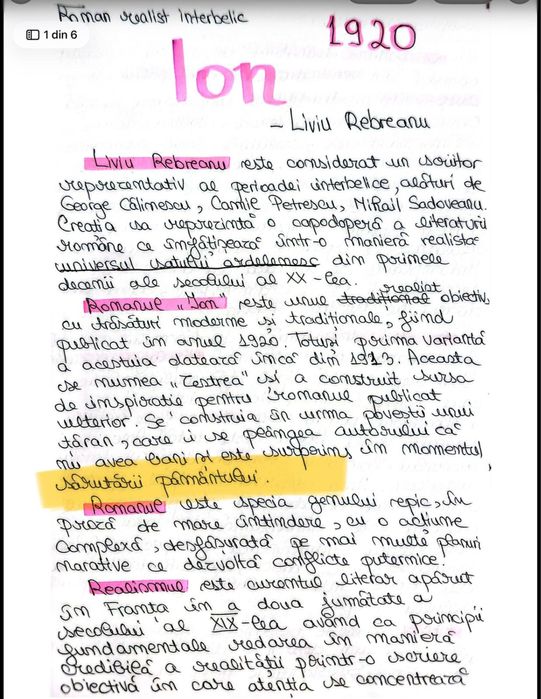 Roman realist interbelic
1 din 6
1920
Ion
- Liviu Rebreanu
Liviu Rebreanu este considerat un scriitor
reprezentativ al perioadei interbelice, alături de
George Călinescu, Camil Petrescu, Mihail Sadoveanu.
Creația sa reprezintă o capodoperă a literaturii
române ce înfățișează într-o manieră realistă
universul satului ardelenesc din primele
decenii ale secolului al XX-lea.
realist
Romanul "Ion" este unul traditional obiectiv,
cu trăsături moderne și tradiționale, fiind
publicat în anul 1920. Totuși prima variantă
a acestuia datează încă din 1913. Aceasta
se numea "Zestrea" și a construit sursa
de inspirație pentru romanul publicat
ulterior. Se construia în urma poveștii unui
țăran, care i se plângea autorului că
nu avea bani și este surprins, în momentul
sărutării pământului.
Romanul este specia genului epic, în
proză de mare întindere, cu o acțiune
complexă, desfășurată pe mai multe planuri
narative ce dezvoltă conflicte puternice.
Realismul este curentul literar apărut
în Franta în a doua jumătate a
secolului al XIX-lea având ca principii
fundamentale redarea în manieră
credibilă a realității printr-o scriere
obiectivă în care atenția se concentrează